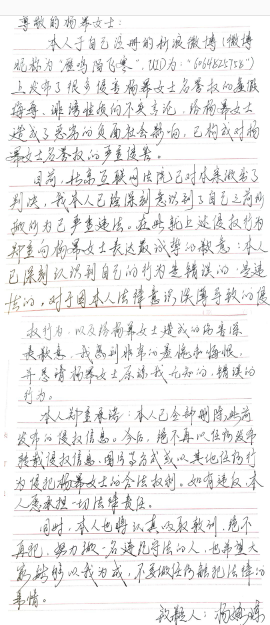 尊敬的杨幂女士：
本人于自己注册的新浪微博（微博
昵称为“雁鸣陌飞寒”，UID为：“6064825758”）
上发布了很多侵害杨幂女士名誉权的虚假
侮辱、诽谤性质的不实言论，给杨幂女士
造成了恶劣的负面社会影响，已构成对杨
幂女士名誉权的严重侵害。
目前，北京互联网法院已对本案做出了
判决，我本人已经深刻意识到了自己之前所
做所为已严重违法。在此就上述侵权行为
郑重向杨幂女士表达最诚挚的歉意：本人
已深刻认识到自己的行为是错误的、是违
法的，对于因本人法律意识淡薄导致的侵
权行为，以及给杨幂女士造成的伤害深
表歉意，我感到非常的羞愧和悔恨，
并恳请杨幂女士原谅我无知的、错误的
行为。
本人郑重承诺：本人已全部删除此前
发布的侵权信息。今后，绝不再以任何发布
转载侵权信息、图片等方式或以其他任何行
为侵犯杨幂女士的合法权利。如有违反，本
人愿承担一切法律责任。
同时，本人也将认真吸取教训，绝不
再犯，努力做一名遵纪守法的人，也希望大
家能够以我为戒，不要做任何触犯法律的
事情。
致歉人：